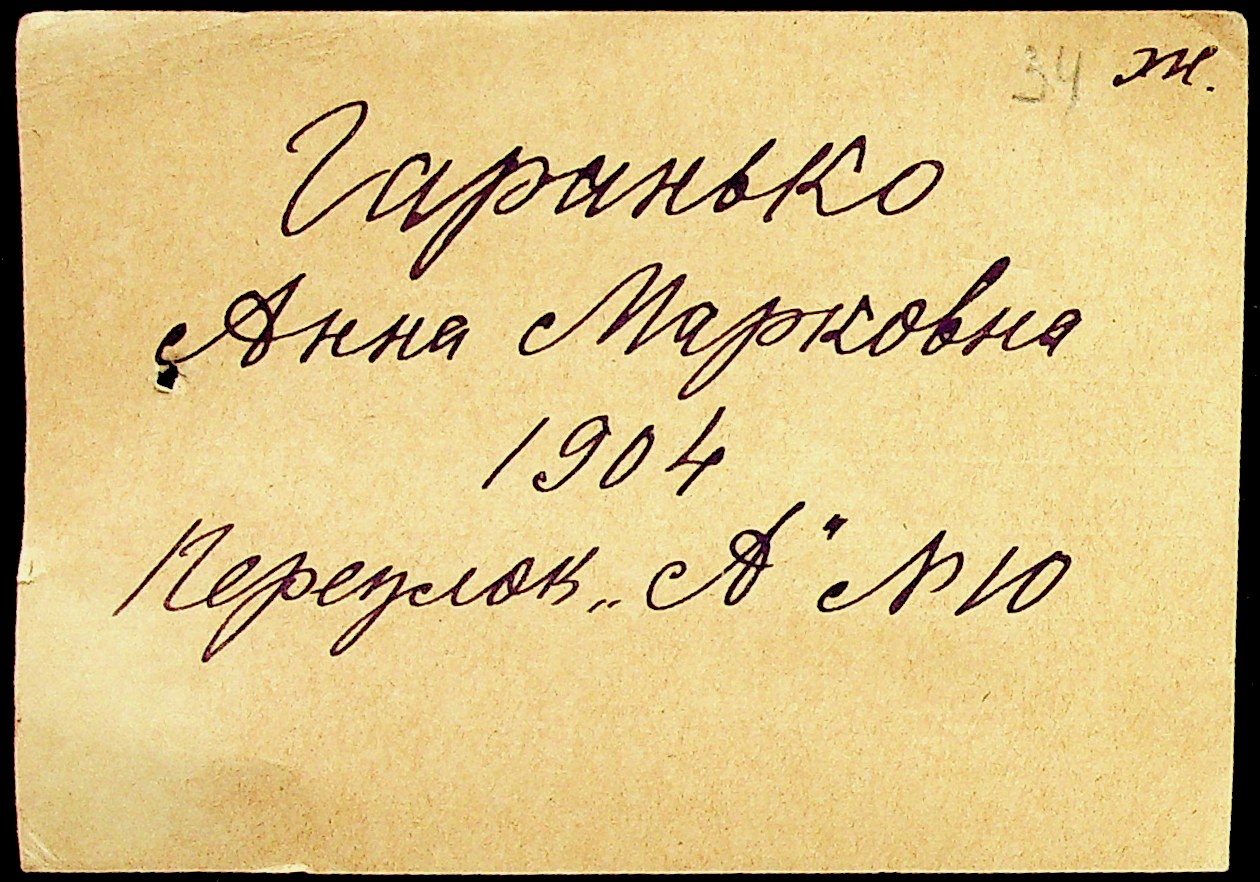 34 ж.
Гаранько
Анна Марковна
1904
Переулок „А" № 10